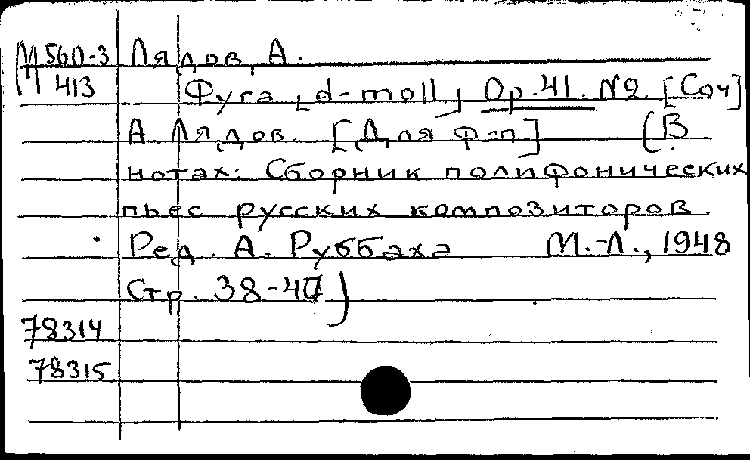 М 560-3 Лядов, А.
П 413
Фуга [d-moll] Op. 41. №2. [Соч]
А Лядов. [Для ф-п] (В
нотах: Сборник полифонических
пьес русских композиторов
Ред. А. Руббаха М.-Л., 1948
Стр. 38-40)
78314
78315